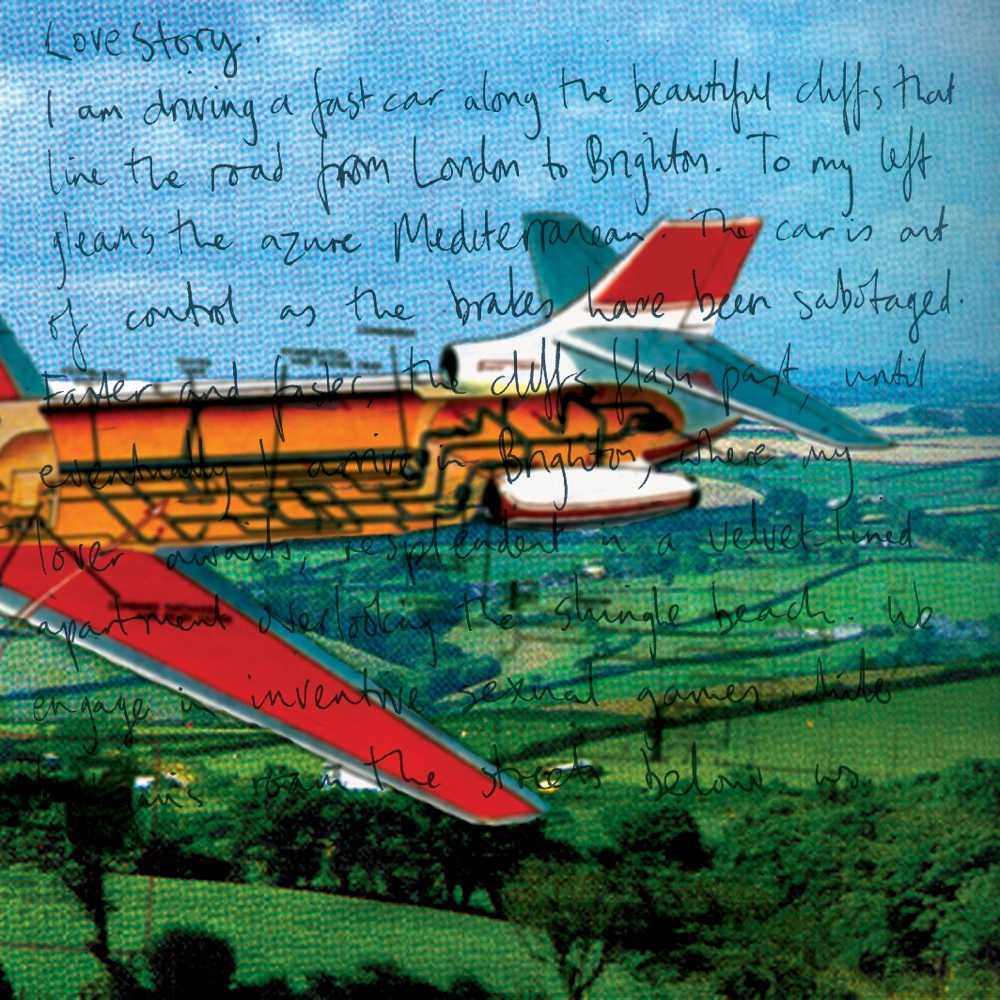 Love Story.
I am driving a fast car along the beautiful cliffs that
line the road from London to Brighton. To my left
gleams the azure Mediterranean. The car is out
of control as the brakes have been sabotaged.
Faster and faster, the cliffs flash past, until
eventually I arrive in Brighton, where my
lover awaits, resplendent in a velvet-lined
apartment overlooking the shingle beach. We
engage in inventive sexual games while
roam the streets below us.